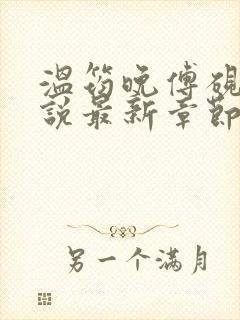 温筠晚傅砚
说最新章节
另一个满月